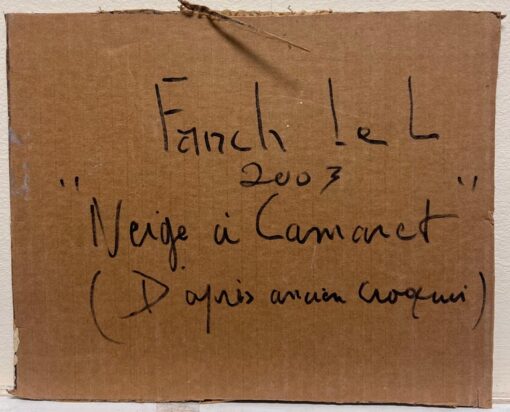 Fanch Le L
2003
"Neige à Camaret"
(D'après ancien croquis)